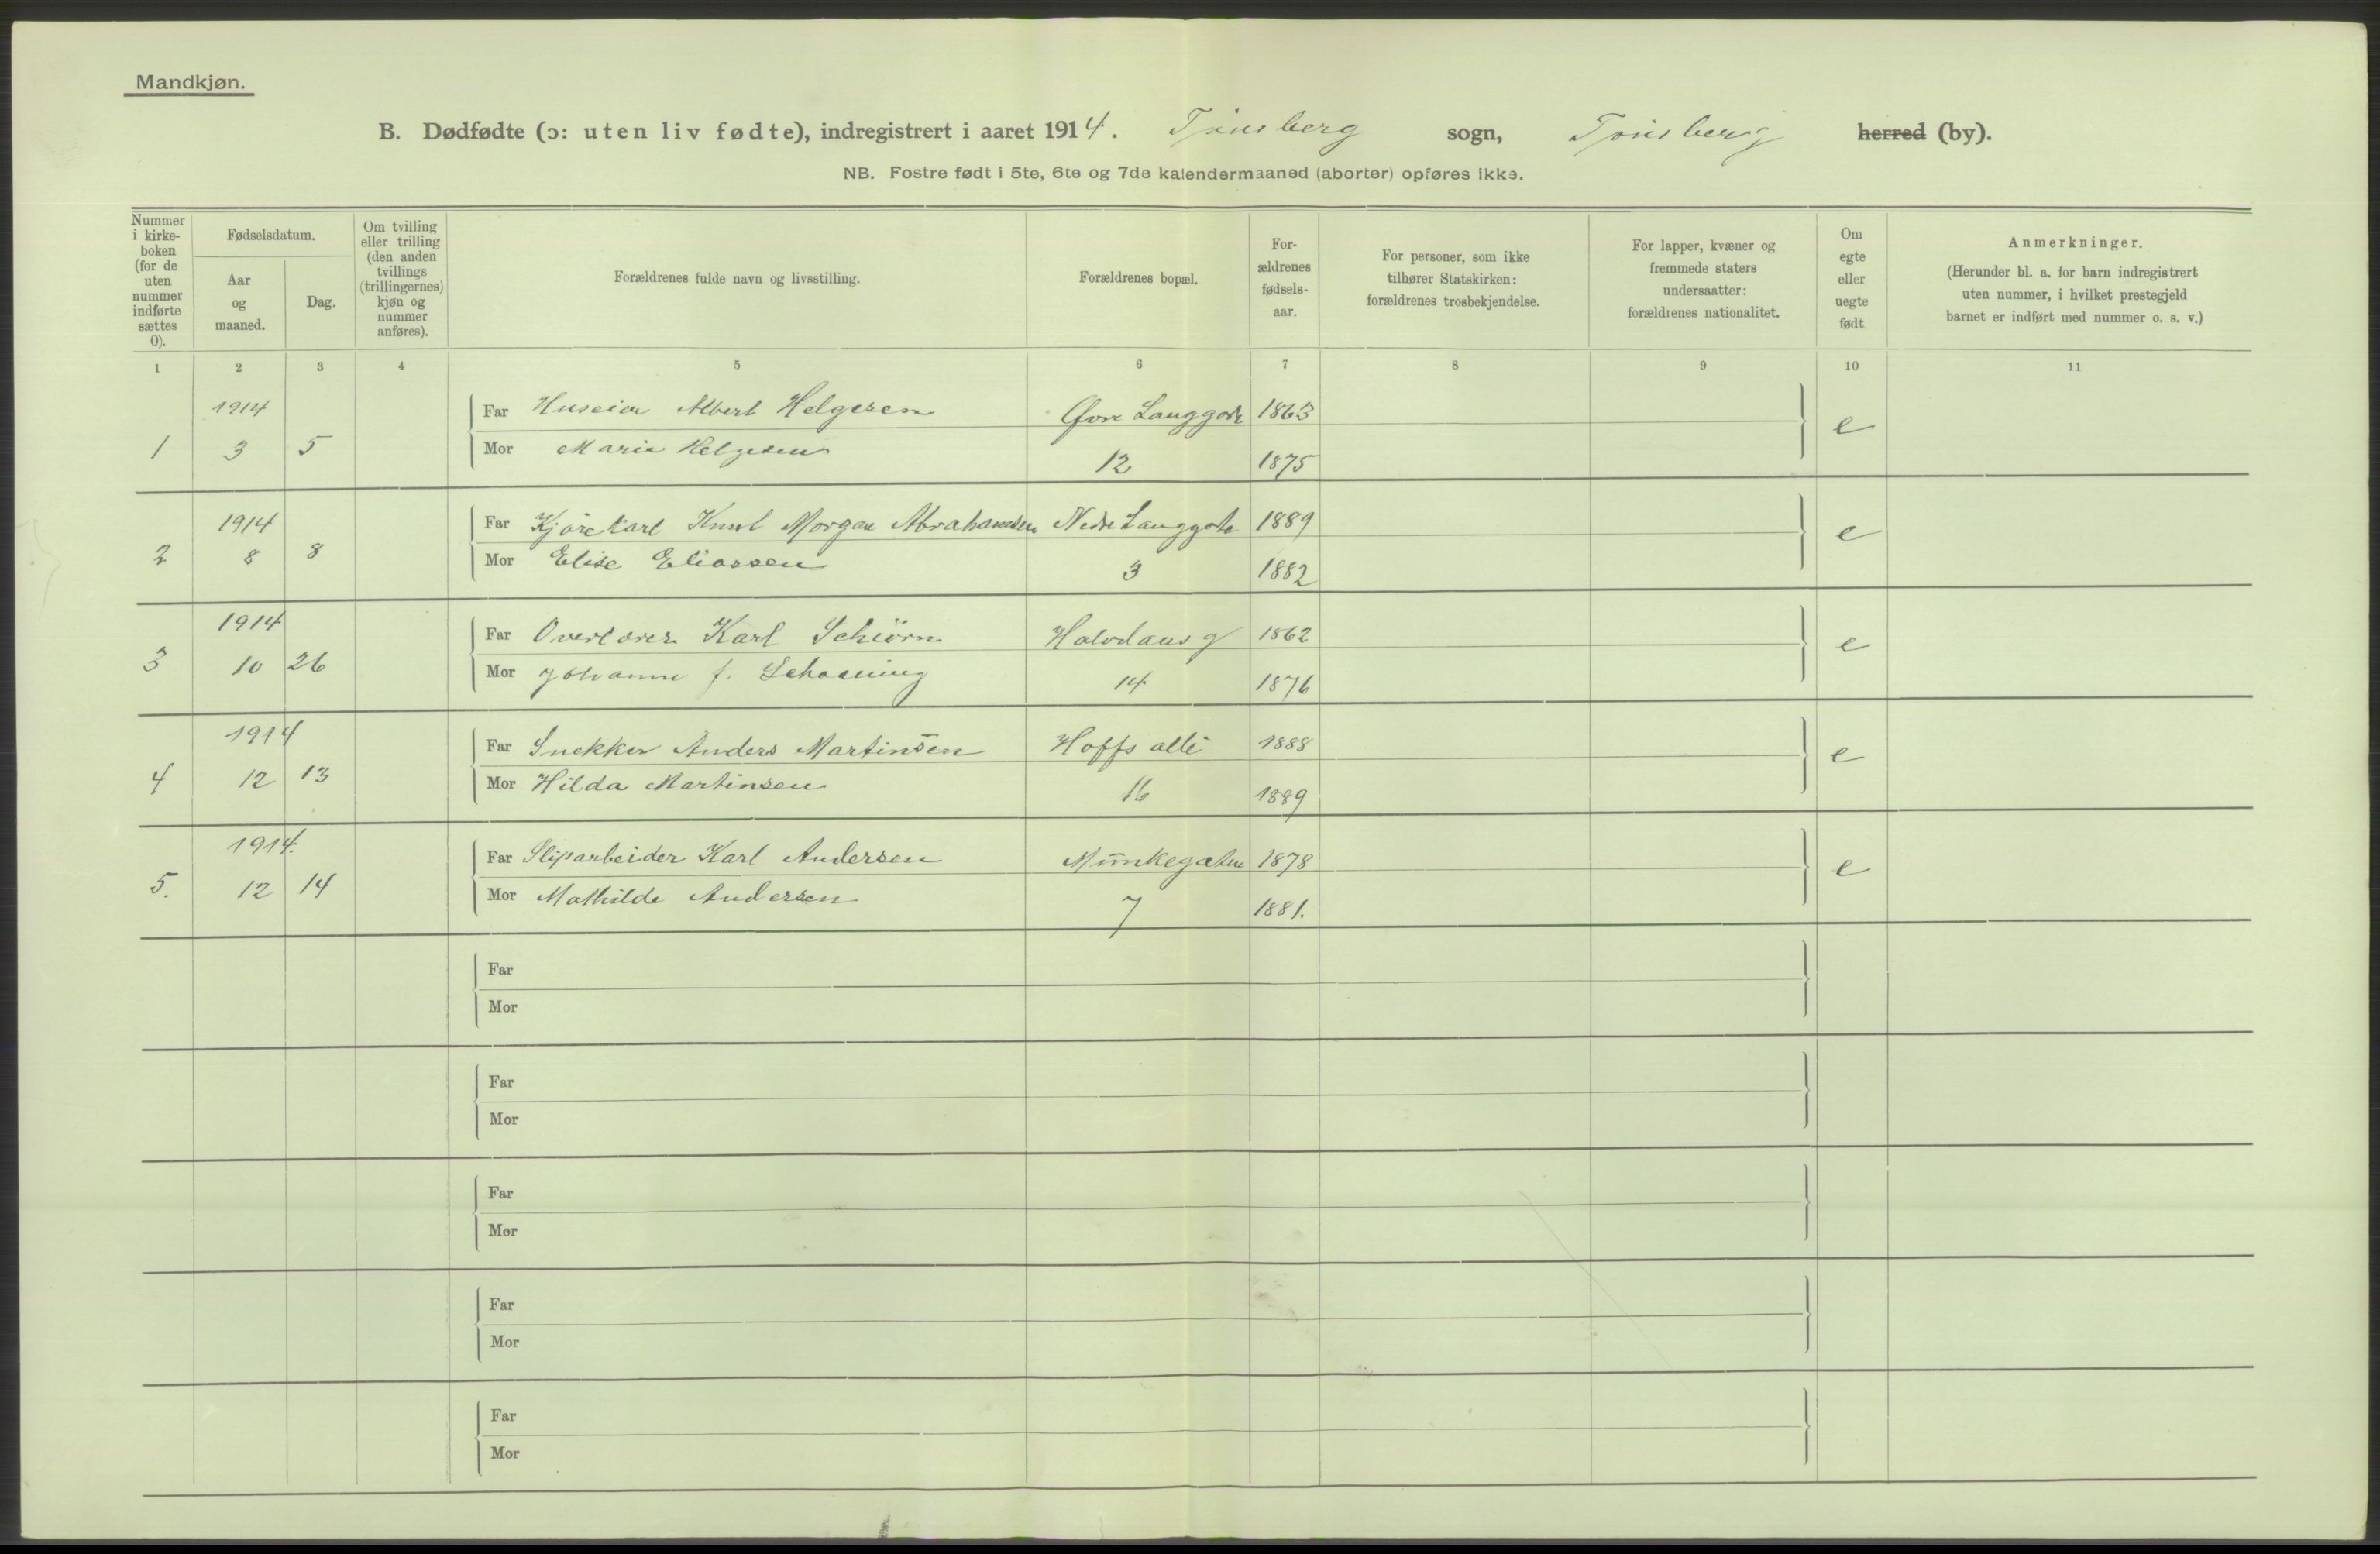 Mandkjøn.
B. Dødfødte (ɔ: uten liv fødte), indregistrert i aaret 1914. Tønsberg sogn, Tønsberg herred (by).
NB. Fostre født i 5te, 6te og 7de kalendermaaned (aborter) opføres ikke.
Nummer i kirke-boken (for de uten nummer indførte sættes 0).
Fødselsdatum.
Aar og maaned.
Dag.
Om tvilling eller trilling (den anden tvillings (trillingernes) kjøn og nummer anføres).
Forældrenes fulde navn og livsstilling.
Forældrenes bopæl.
For-ældrenes fødsels-aar.
For personer, som ikke tilhører Statskirken: forældrenes trosbekjendelse.
For lapper, kvæner og fremmede staters undersaatter: forældrenes nationalitet.
Om egte eller uegte født.
Anmerkninger.
(Herunder bl. a. for barn indregistrert uten nummer, i hvilket prestegjeld barnet er indført med nummer o. s. v.)
1 2 3 4 5 6 7 8 9 10 11
1914 Far Huseier Albert Helgesen Øvre Langgate 1863
1 3 5 Mor Marie Helgesen 12 1875 e
1914 Far Kjørekarl Knut Morgan Abrahamsen Nedre Langgate 1889
2 8 8 Mor Elise Eliassen 3 1882 e
1914 Far Overlærer Karl Schiörn Halvdans g 1862
3 10 26 Mor Johanne f. Schaaning 14 1876 e
1914 Far Snekker Anders Martinsen Hoffs allé 1888
4 12 13 Mor Hilda Martinsen 16 1889 e
1914. Far Slipsarbeider Karl Andersen Munkegaten 1878
5. 12 14 Mor Mathilde Andersen 7 1881. e
Far
Mor
Far
Mor
Far
Mor
Far
Mor
Far
Mor